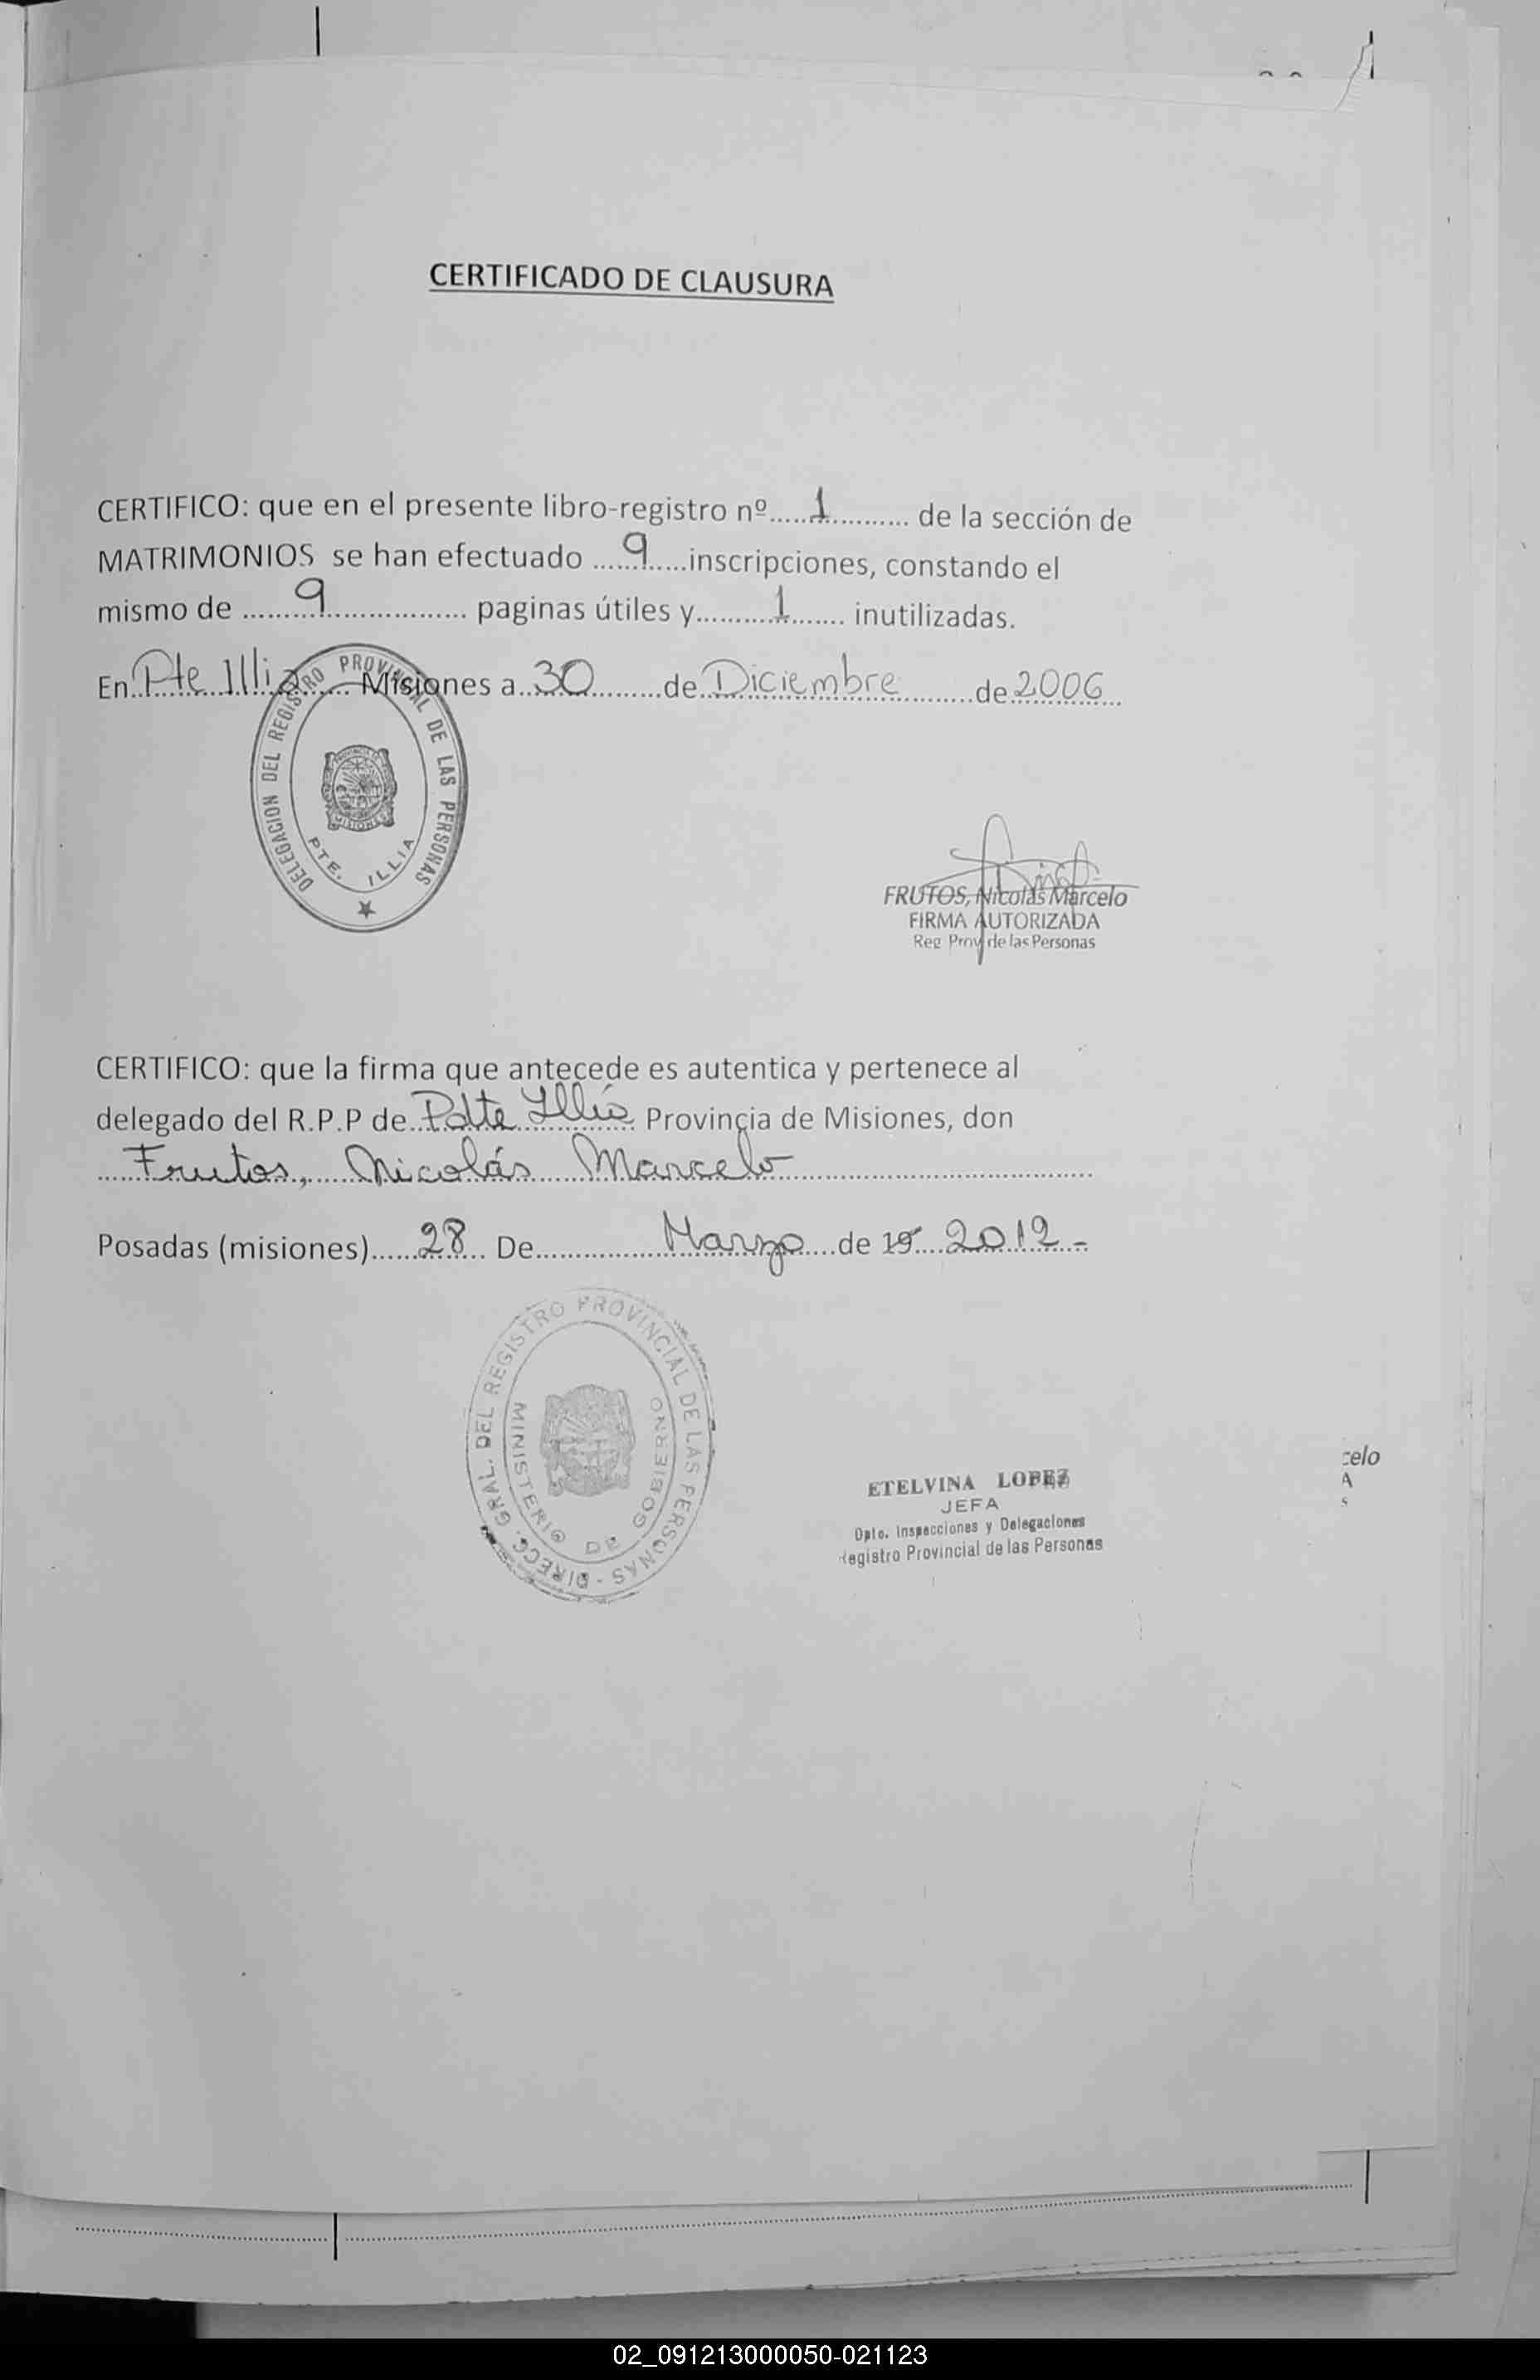 CERTIFICADO DE CLAUSURA
CERTIFICO: que en el presente libro-registro nº.....1.......... de la sección de
MATRIMONIOS se han efectuado ......9.....inscripciones, constando el
mismo de ........9................. paginas útiles y..........1....... inutilizadas.
En Pte Illia....... Misiones a..30.........de..Diciembre.........de 2006
DELEGACION DEL REGISTRO PROVINCIAL DE LAS PERSONAS
PROVINCIA DE
MISIONES
PTE. ILLIA
FRUTOS, Nicolás Marcelo
FIRMA AUTORIZADA
Reg Prov de las Personas
CERTIFICO: que la firma que antecede es autentica y pertenece al
delegado del R.P.P de..Pdte Illia Provincia de Misiones, don
Frutos, Nicolás Marcelo
Posadas (misiones)......28... De..............Marzo....de 19....2012.-
DIRECC. GRAL. DEL REGISTRO PROVINCIAL DE LAS PERSONAS -
MINISTERIO DE GOBIERNO
ETELVINA LOPEZ
JEFA
Dpto. Inspecciones y Delegaciones
Registro Provincial de las Personas
celo
A
s
02_091213000050-021123